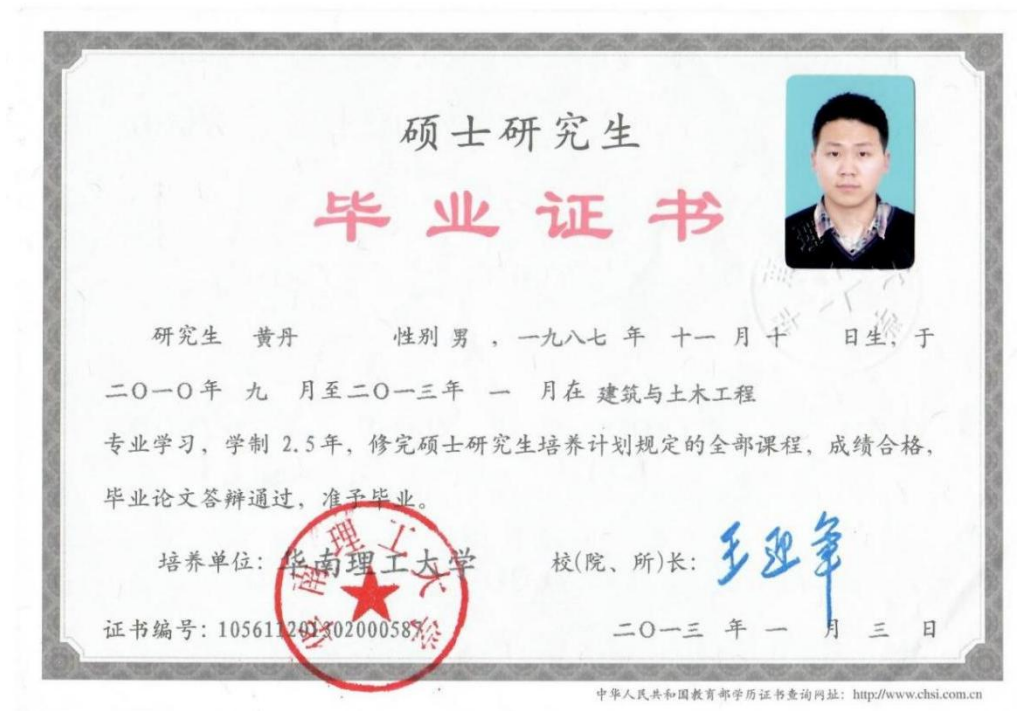 硕士研究生
毕业证书
研究生 黄丹 性别 男 ，一九八七 年 十一 月 十 日生，于
二〇一〇年 九 月至二〇一三年 一 月在 建筑与土木工程
专业学习，学制 2.5年，修完硕士研究生培养计划规定的全部课程，成绩合格，
毕业论文答辩通过，准予毕业。
培养单位：华南理工大学 校(院、所)长：
华南理工大学
证书编号：
二〇一三 年 一 月 三 日
中华人民共和国教育部学历证书查询网址：http://www.chsi.com.cn